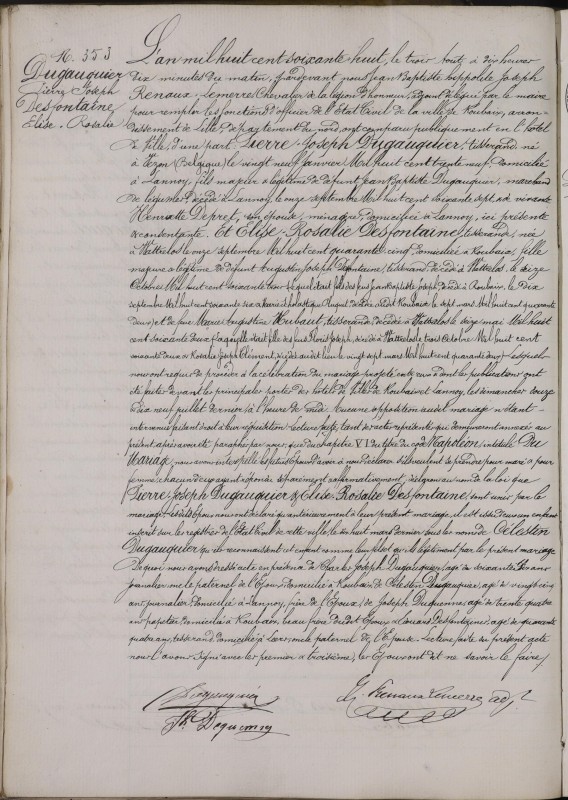 N. 353
Dugauquier
Pierre Joseph
Desfontaine
Elise Rosalie
L'an mil huit cent soixante huit, le trois Août à dix heures
dix minutes du matin, pardevant nous Jean Baptiste hippolite Joseph
Renaux-Lemerre Chevalier de la légion d'honneur, adjoint délégué par le maire
pour remplir les fonctions d'officier de l'Etat Civil de la ville de Roubaix, arron-
dissement de Lille, département du nord, ont comparu publiquement en l'hôtel
de Ville, d'une part Pierre-Joseph Dugauquier, tisserand, né
à (Belgique) le vingt neuf janvier Mil huit cent trente neuf, domicilié
à Lannoy, fils majeur & légitime de défunt Jean Baptiste Dugauquier, marchand
de légumes, décédé à Lannoy, le onze septembre Mil huit cent soixante sept & de vivante
Henriette Depret, son épouse, ménagère, domiciliée à Lannoy, ici présente
& consentante. Et Elise-Rosalie Desfontaine, tisserande, née
à Wattrelos le onze septembre Mil huit cent quarante cinq, domiciliée à Roubaix, fille
majeure & légitime de défunt Augustin Joseph Desfontaine, tisserand, décédé à Wattrelos, le seize
Octobre Mil huit cent soixante trois lequel était fils des feus Jean Baptiste Joseph, décédé à Roubaix, le dix
septembre Mil huit cent soixante six & Marie Scholastique Huguet décédée audit Roubaix le sept mars Mil huit cent quarante
deux) et de feue Marie Augustine Hubaut, tisserande, décédée à Wattrelos le seize mai Mil huit
cent soixante deux (laquelle était fille des feus Floris Joseph, décédé à Wattrelos le trois Octobre Mil huit cent
cinquante deux & Rosalie Joseph Clément, décédée audit lieu le vingt sept mars Mil huit cent quarante deux) Lesquels
nous ont requis de procéder à la célébration du mariage projeté entre eux & dont les publications ont
été faites devant les principales portes des hôtels de Ville de Roubaix et Lannoy, les dimanches douze
& dix neuf juillet dernier à l'heure de midi. Aucune opposition audit mariage n'étant
intervenue, faisant droit à leur réquisition. Lecture faite, tant des actes représentés qui demeureront annexés au
présent après avoir été paraphés par nous, que du Chapitre VI du titre du code Napoléon, intitulé Du
Mariage, nous avons interpellé les futurs Epoux d'avoir à nous déclarer s'ils veulent se prendre pour mari & pour
femme, chacun d'eux ayant répondu séparément & affirmativement, déclarons au nom de la loi que
Pierre-Joseph Dugauquier & Elise-Rosalie Desfontaine, sont unis par le
mariage. Lesdits Epoux nous ont déclaré qu'antérieurement à leur présent mariage, il est issu d'eux un enfant
inscrit sur les registres de l'Etat Civil de cette ville, le dix huit mars dernier sous les noms de Célestin
Dugauquier qu'ils reconnaissent cet enfant comme leur fils et qu'ils légitiment par le présent mariage
De quoi nous avons dressé acte en présence de Charles Joseph Dugauquier, âgé de soixante ans
journalier oncle paternel de l'Epoux, domicilié à Roubaix, de Célestin Dugauquier, âgé de vingt cinq
ans, journalier, domicilié à Lannoy, frère de l'Epoux, de Joseph Duquenne, âgé de trente quatre
ans domicilié à Roubaix, beau frère dudit Epoux & Louis Desfontaine, âgé de quarante
quatre ans, tisserand, domicilié à Leers, oncle paternel de l'Epouse. Lecture faite du présent acte
nous l'avons signé avec les premier & troisième, les Epoux ont dit ne savoir le faire.
Dugauquier
Jh Duquenne
H. Renaux Lemerre adjt